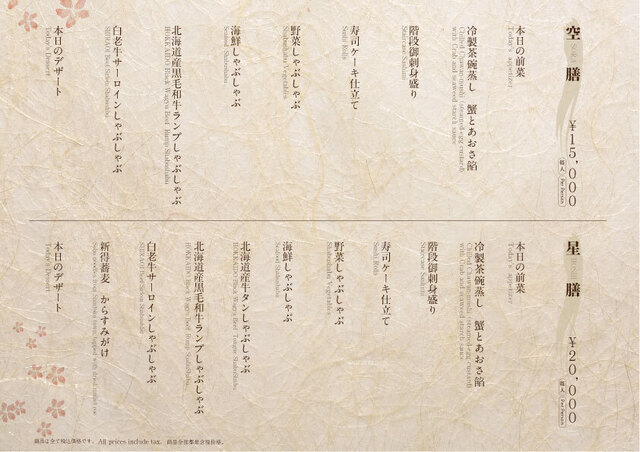 空 膳 ¥15,000
毎人 Per Person
本日の前菜
Today's appetizer
冷製茶碗蒸し 蟹とあおさ餡
Chilled Chawan-mushi (steamed egg custard)
with Crab and seaweed starch sauce
階段御刺身盛り
Staircase Sashimi
寿司ケーキ仕立て
Sushi Rolls
野菜しゃぶしゃぶ
Shabushabu Vegetables
海鮮しゃぶしゃぶ
Seafood Shabushabu
北海道産黒毛和牛ランプしゃぶしゃぶ
HOKKAIDO Black Wagyu Beef Rump Shabushabu
白老牛サーロインしゃぶしゃぶ
SHIRAOI Beef Sirloin Shabushabu
本日のデザート
Today's Dessert
星 膳 ¥20,000
毎人 Per Person
本日の前菜
Today's appetizer
冷製茶碗蒸し 蟹とあおさ餡
Chilled Chawan-mushi (steamed egg custard)
with Crab and seaweed starch sauce
階段御刺身盛り
Staircase Sashimi
寿司ケーキ仕立て
Sushi Rolls
野菜しゃぶしゃぶ
Shabushabu Vegetables
海鮮しゃぶしゃぶ
Seafood Shabushabu
北海道産牛タンしゃぶしゃぶ
HOKKAIDO Black Wagyu Beef Tongue Shabushabu
北海道産黒毛和牛ランプしゃぶしゃぶ
HOKKAIDO Black Wagyu Beef Rump Shabushabu
白老牛サーロインしゃぶしゃぶ
SHIRAOI Beef Sirloin Shabushabu
新得蕎麦 からすみがけ
Soba noodles from Shintoku town, topped with dried mullet roe
本日のデザート
Today's Dessert
価格は全て税込価格です。 All prices include tax.